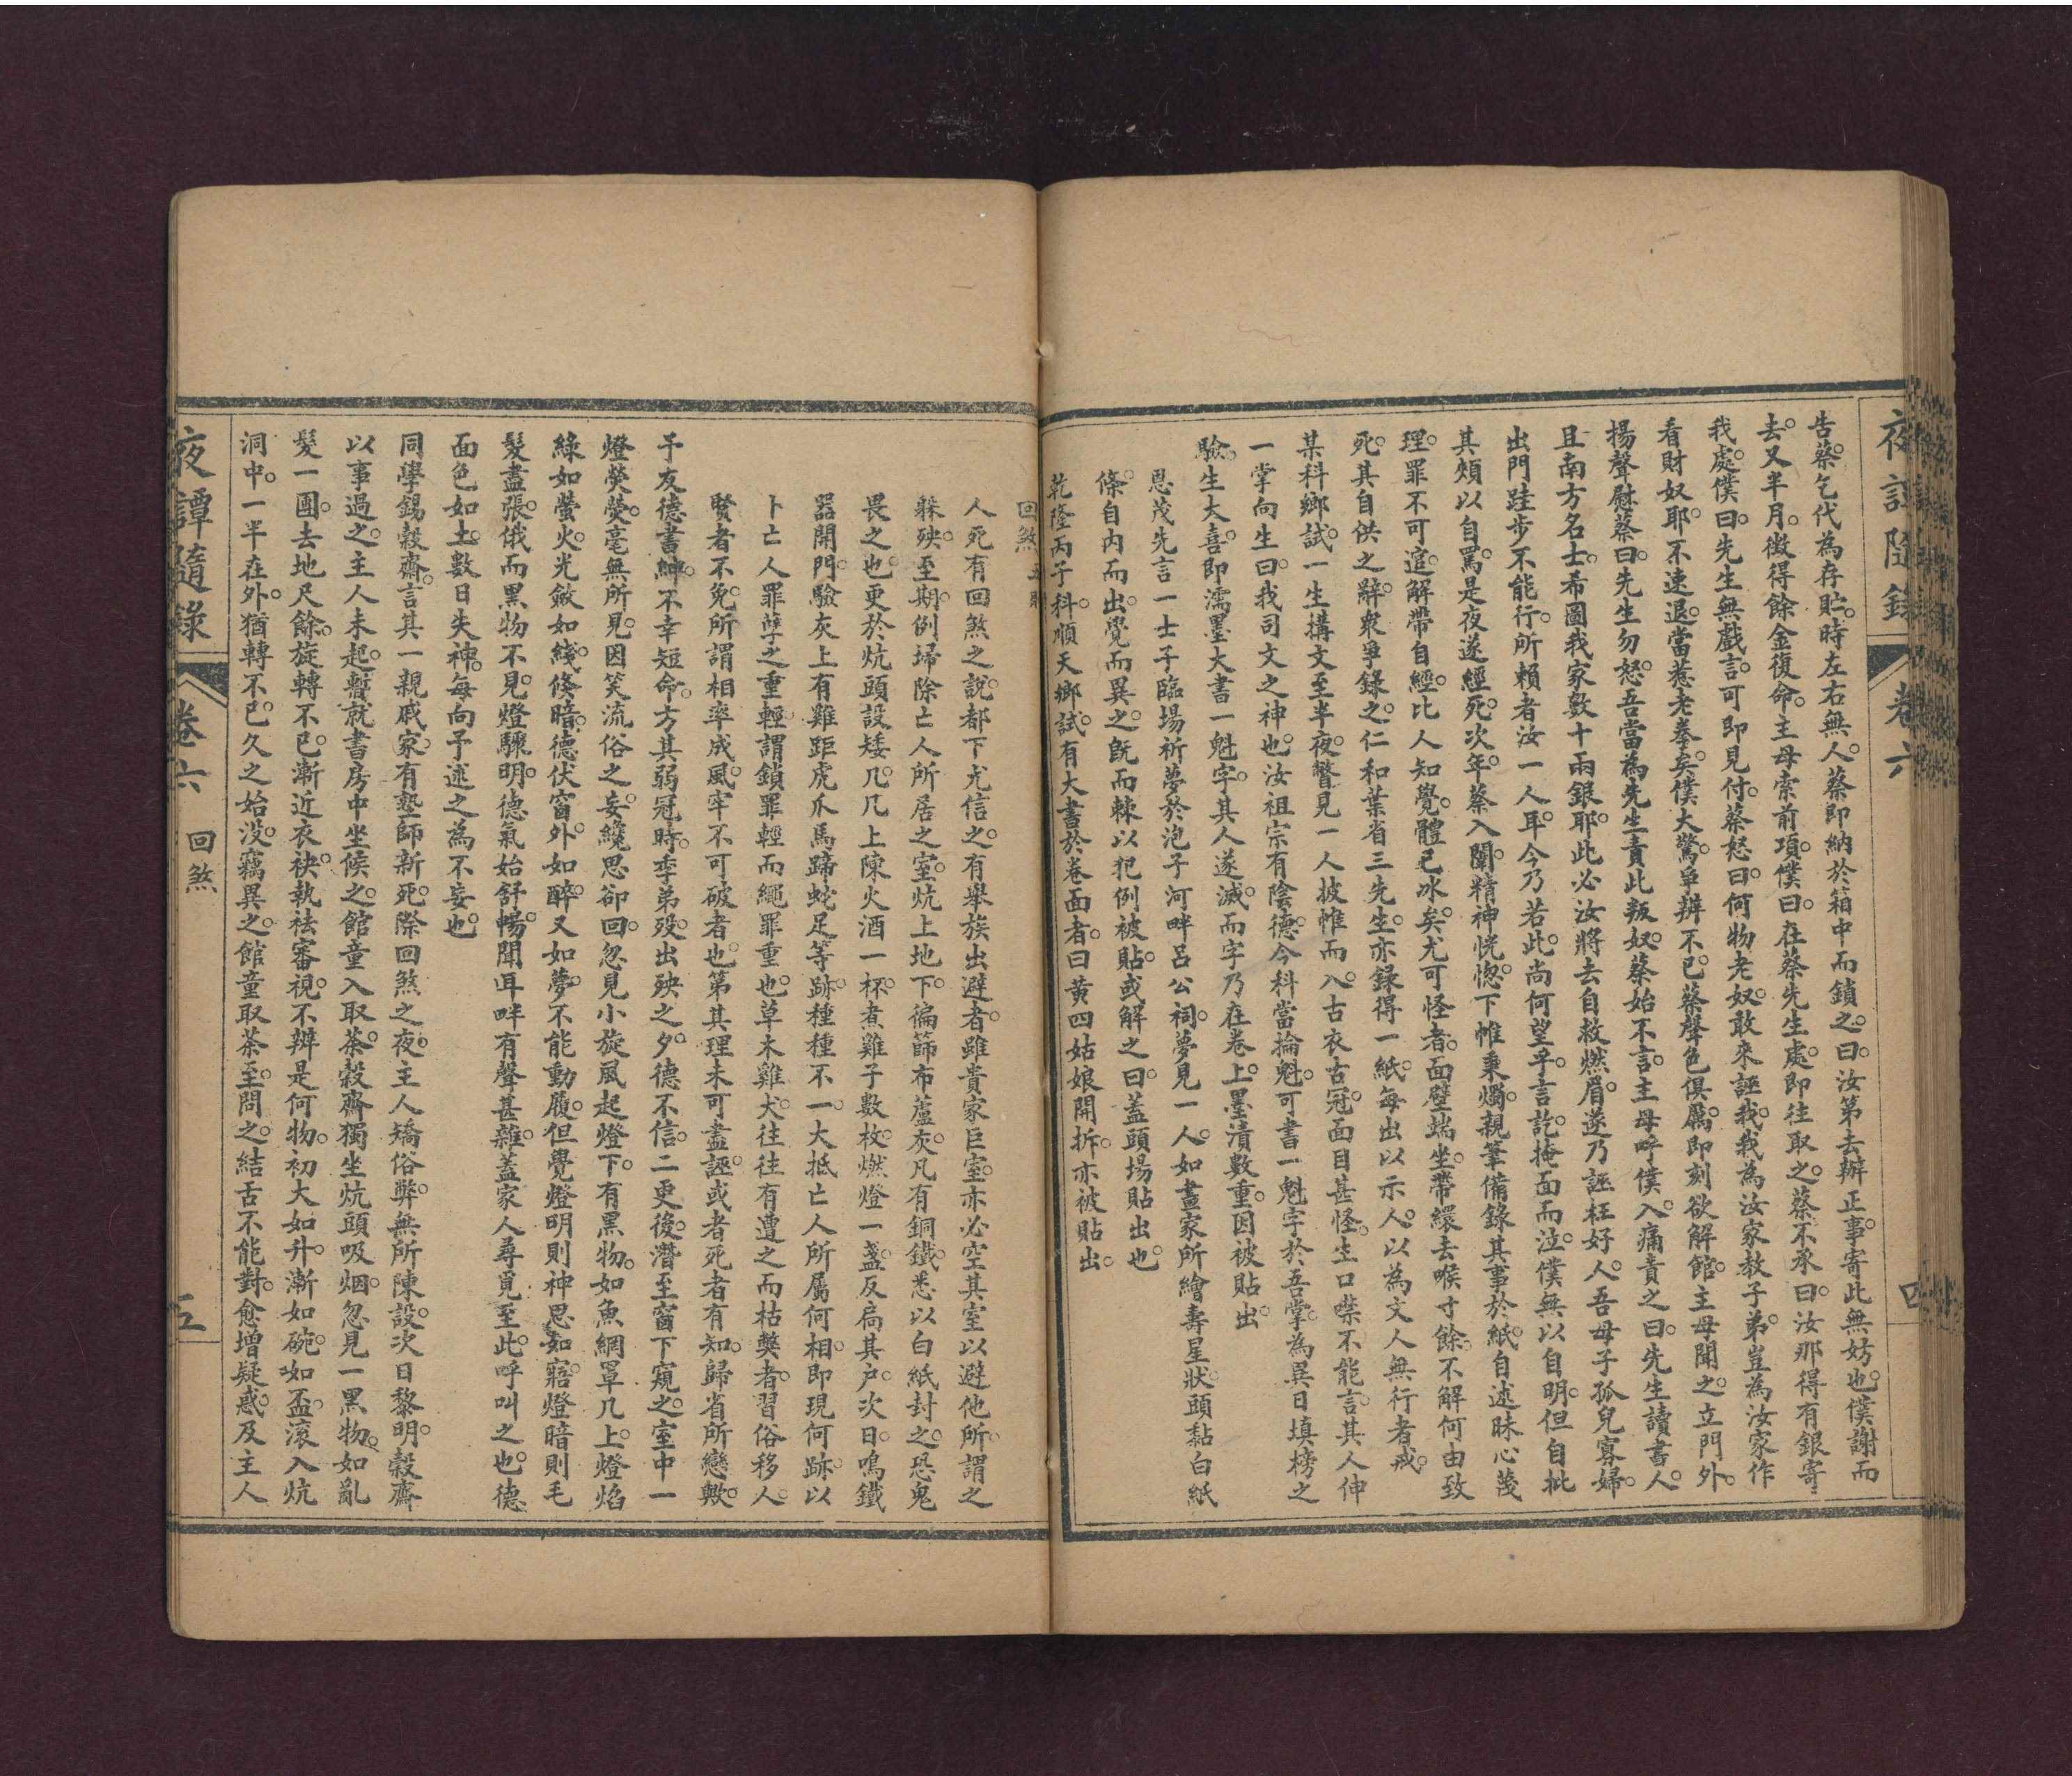 夜譚隨錄 卷六 四
告蔡。乞代為存貯。時左右無人。蔡即納於箱中而鎖之。曰。汝第去辦正事。寄此無妨也。僕謝而
去。又半月。徵得餘金復命。主母索前項。僕曰。在蔡先生處。即往取之。蔡不承。曰。汝那得有銀寄
我處。僕曰。先生無戲言。可即見付。蔡怒曰。何物老奴。敢來誣我。我為汝家教子弟。豈為汝家作
看財奴耶。不速退。當惹老拳矣。僕大驚。爭辨不已。蔡聲色俱厲。即刻欲解館。主母聞之。立門外。
揚聲慰蔡曰。先生勿怒。吾當為先生責此叛奴。蔡始不言。主母呼僕入。痛責之。曰。先生讀書人。
且南方名士。希圖我家數十兩銀耶。此必汝將去自救燃眉。遂乃誣枉好人。吾母子孤兒寡婦。
出門跬步不能行。所賴者汝一人耳。今乃若此。尚何望乎。言訖。掩面而泣。僕無以自明。但自批
其頰以自罵。是夜遂經死。次年。蔡入闈。精神恍惚。下帷秉燭。親筆備錄其事於紙。自述昧心蔑
理。罪不可逭。解帶自經。比人知覺。體已冰矣。尤可怪者。面壁端坐。帶繯去喉寸餘。不解何由致
死。其自供之辭。眾爭錄之。仁和葉省三先生。亦錄得一紙。每出以示人。以為文人無行者戒。
某科鄉試。一生搆文至半夜。瞥見一人披帷而入。古衣古冠。面目甚怪。生口噤不能言。其人伸
一掌向生曰。我司文之神也。汝祖宗有陰德。今科當掄魁。可書一魁字於吾掌。為異日填榜之
驗。生大喜。即濡墨大書一魁字。其人遂滅。而字乃在卷上。墨漬數重。因被貼出。
恩茂先言一士子臨場祈夢於泡子河畔呂公祠。夢見一人。如畫家所繪壽星狀。頭黏白紙
條。自內而出。覺而異之。既而棘以犯例被貼。或解之曰。蓋頭場貼出也。
乾隆丙子科。順天鄉試。有大書於卷面者。曰黃四姑娘開拆。亦被貼出。
回煞五則
人死有回煞之說。都下尤信之。有舉族出避者。雖貴家巨室。亦必空其室以避他所。謂之
躲殃。至期。例埽除亡人所居之室。炕上地下。徧篩布蘆灰。凡有銅鐵。悉以白紙封之。恐鬼
畏之也。更於炕頭設矮几。几上陳火酒一杯。煮雞子數枚。燃燈一盞。反扃其戶。次日。鳴鐵
器開門。驗灰上有雞距虎爪馬蹄蛇足等跡。種種不一。大抵亡人所屬何相。即現何跡。以
卜亡人罪孽之重輕。謂鎖罪輕而繩罪重也。草木雞犬。往往有遭之而枯斃者。習俗移人。
賢者不免。所謂相率成風。牢不可破者也。第其理未可盡誣。或者死者有知。歸省所戀歟。
予友德書紳。不幸短命。方其弱冠時。季弟殁。出殃之夕。德不信。二更後。潛至窗下窺之。室中一
燈熒熒。毫無所見。因笑流俗之妄。纔思卻回。忽見小旋風起燈下。有黑物。如魚網罩几上。燈焰
綠如螢火。光斂如綫。倏暗。德伏窗外。如醉。又如夢。不能動履。但覺燈明則神思如寤。燈暗則毛
髮盡張。俄而黑物不見。燈驟明。德氣始舒暢。聞耳畔有聲甚雜。蓋家人尋覓至此。呼叫之也。德
面色如土。數日失神。每向予述之。為不妄也。
同學錫穀齋。言其一親戚家。有塾師新死。際回煞之夜。主人矯俗弊。無所陳設。次日黎明。穀齋
以事過之。主人未起。暫就書房中坐候之。館童入取茶。穀齋獨坐炕頭吸烟。忽見一黑物。如亂
髮一團。去地尺餘。旋轉不已。漸近衣袂。執袪審視。不辨是何物。初大如升。漸如碗。如盃。滚入炕
洞中。一半在外。猶轉不已。久之始沒。竊異之。館童取茶至。問之。結舌不能對。愈增疑惑。及主人
夜譚隨錄 卷六 回煞 五